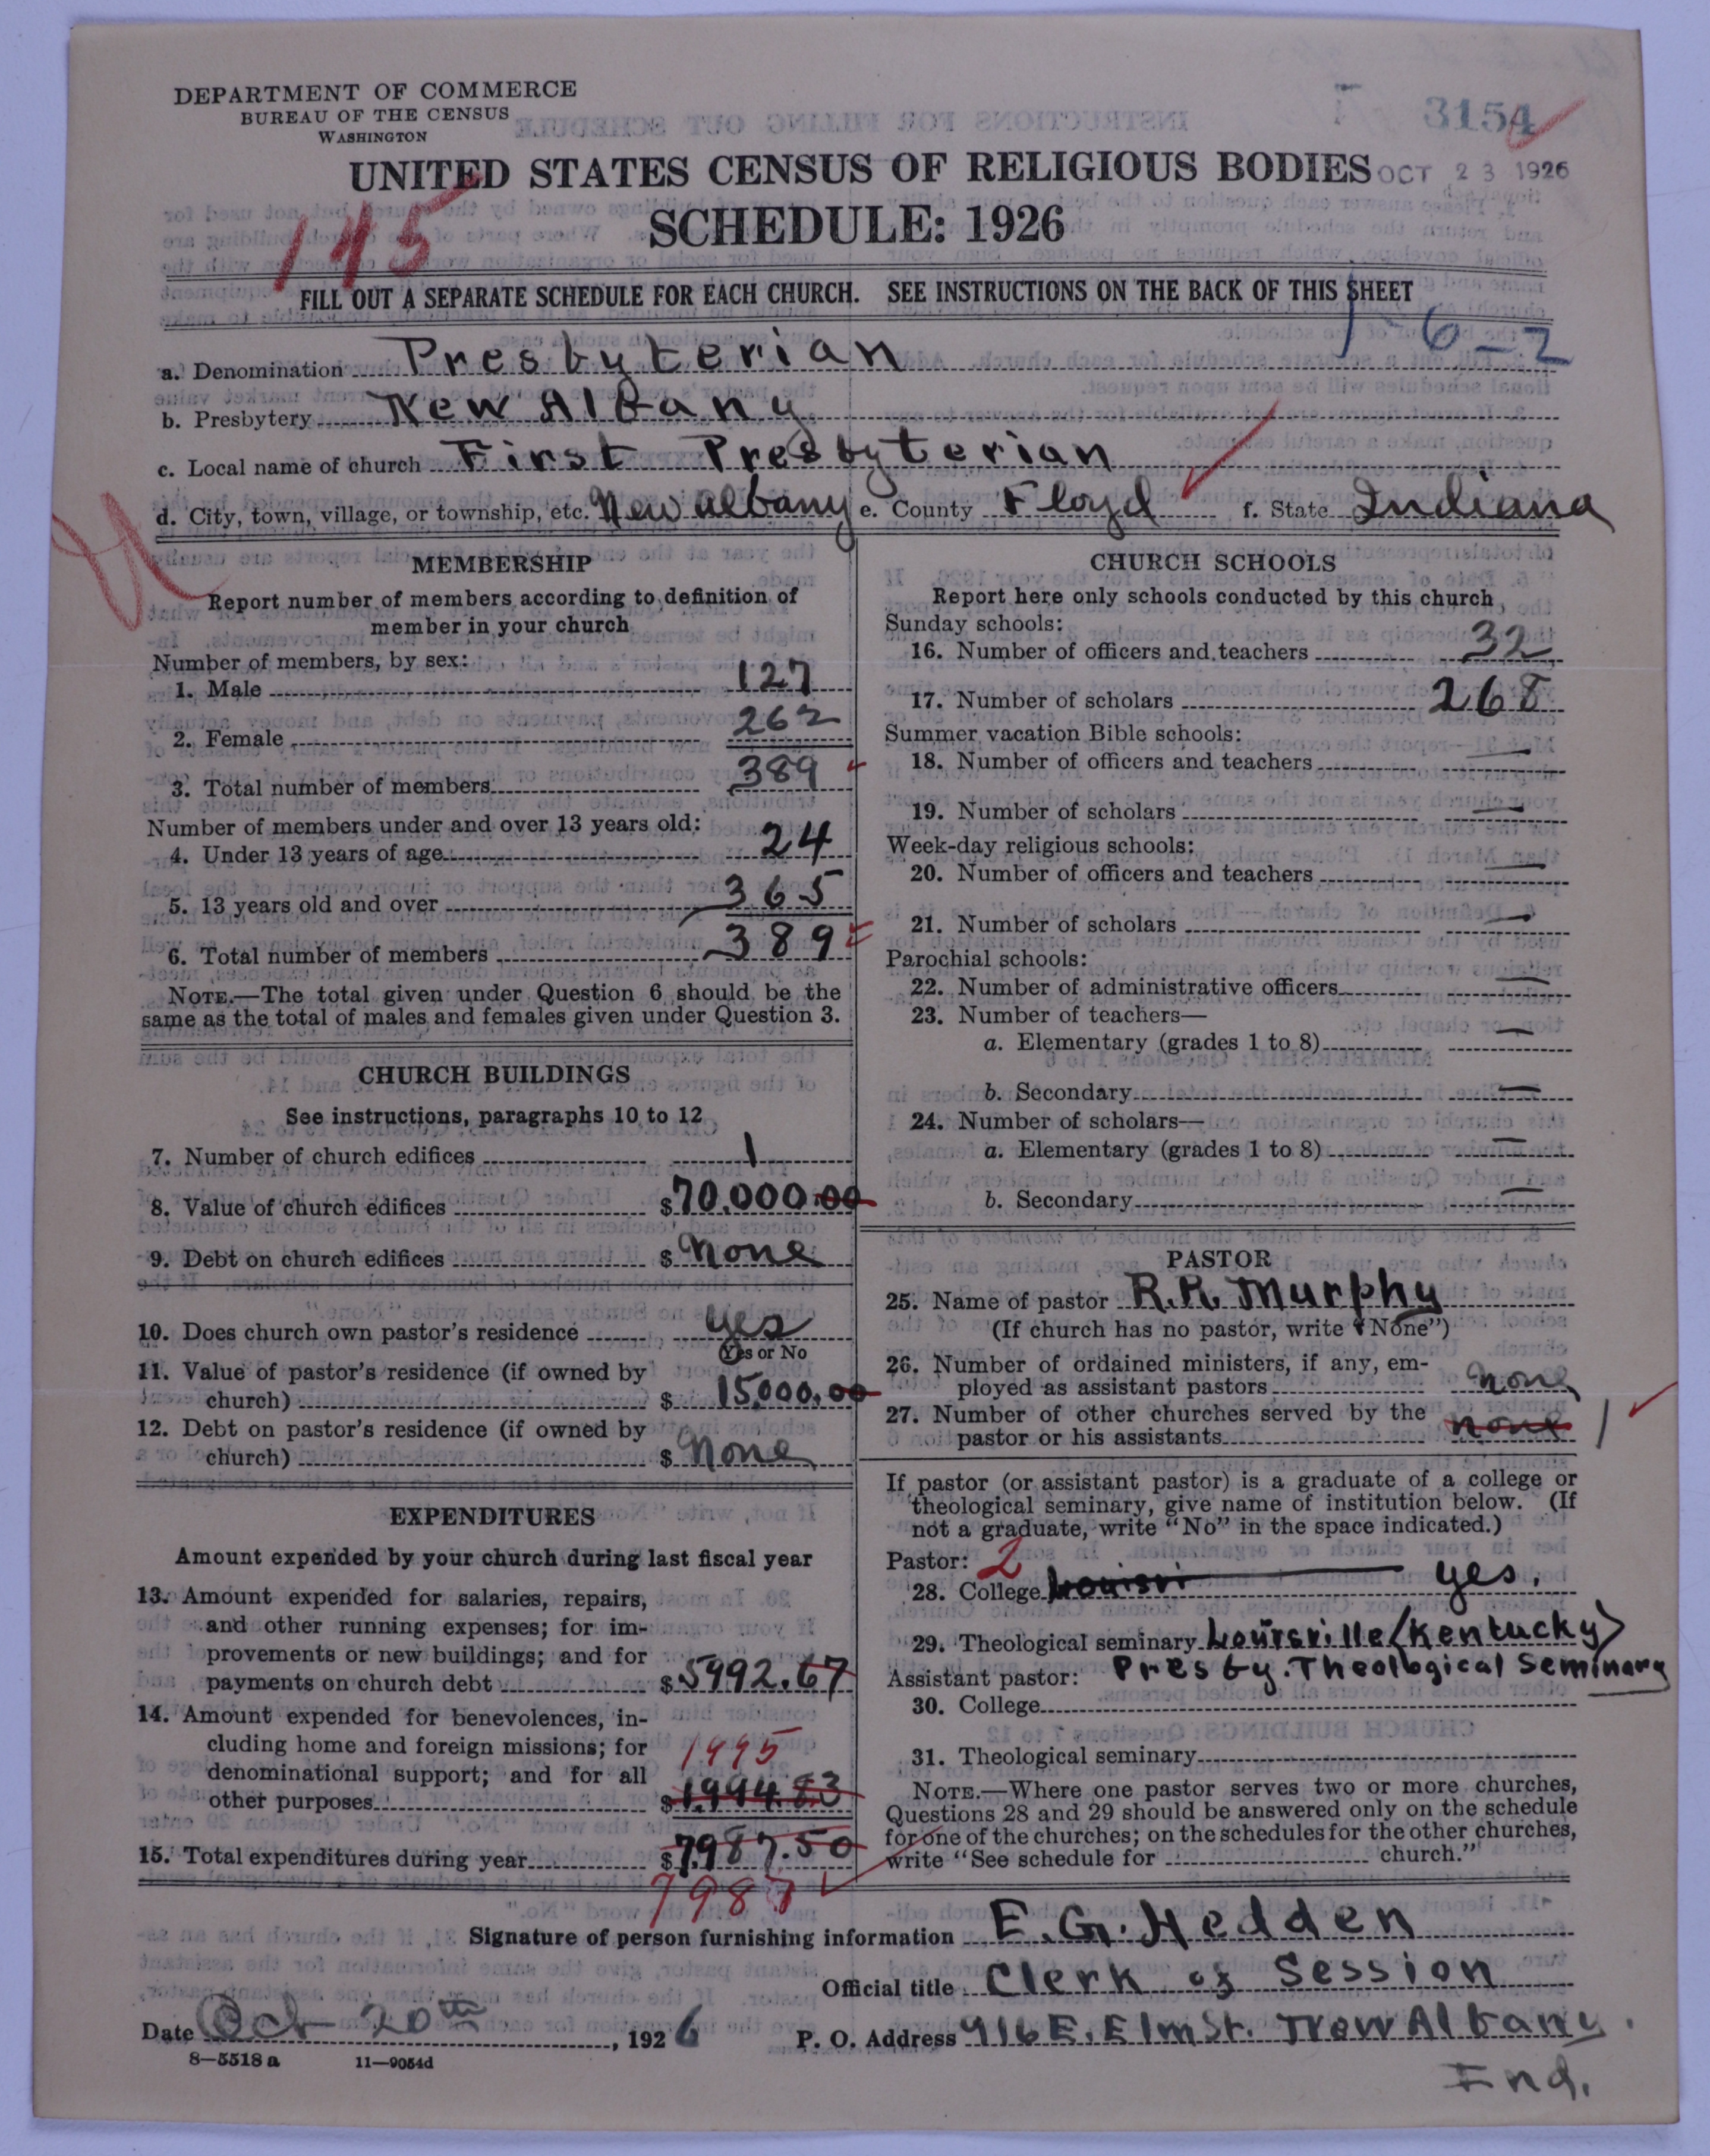 DEPARTMENT OF COMMERCE
BUREAU OF THE CENSUS
WASHINGTON
3154
UNITED STATES CENSUS OF RELIGIOUS BODIES
OCT 23 1926
145
SCHEDULE: 1926
FILL OUT A SEPARATE SCHEDULE FOR EACH CHURCH. SEE INSTRUCTIONS ON THE BACK OF THIS SHEET
1-6-2
a. Denomination Presbyterian
b. Presbytery New Albany
c. Local name of church First Presbyterian
d. City, town, village, or township, etc. New Albany e. County Floyd f. State Indiana
MEMBERSHIP
Report number of members according to definition of
member in your church
Number of members, by sex:
1. Male 127
2. Female 262
3. Total number of members 389
Number of members under and over 13 years old:
4. Under 13 years of age 24
5. 13 years old and over 365
6. Total number of members 389
NOTE.—The total given under Question 6 should be the
same as the total of males and females given under Question 3.
CHURCH BUILDINGS
See instructions, paragraphs 10 to 12
7. Number of church edifices 1
8. Value of church edifices $70.000.00
9. Debt on church edifices $ None
10. Does church own pastor's residence yes
Yes or No
11. Value of pastor's residence (if owned by
church) $ 15000.00
12. Debt on pastor's residence (if owned by
church) $ None
EXPENDITURES
Amount expended by your church during last fiscal year
13. Amount expended for salaries, repairs,
and other running expenses; for im-
provements or new buildings; and for
payments on church debt $5992.67
14. Amount expended for benevolences, in-
cluding home and foreign missions; for
denominational support; and for all
1995
other purposes $1.994.83
15. Total expenditures during year $7.987.50
7987
CHURCH SCHOOLS
Report here only schools conducted by this church
Sunday schools:
16. Number of officers and teachers 32
17. Number of scholars 268
Summer vacation Bible schools:
18. Number of officers and teachers —
19. Number of scholars —
Week-day religious schools:
20. Number of officers and teachers —
21. Number of scholars —
Parochial schools:
22. Number of administrative officers —
23. Number of teachers—
a. Elementary (grades 1 to 8) —
b. Secondary —
24. Number of scholars—
a. Elementary (grades 1 to 8) —
b. Secondary —
PASTOR
25. Name of pastor R.R. Murphy
(If church has no pastor, write "None")
26. Number of ordained ministers, if any, em-
ployed as assistant pastors none
27. Number of other churches served by the
pastor or his assistants none 1
If pastor (or assistant pastor) is a graduate of a college or
theological seminary, give name of institution below. (If
not a graduate, write "No" in the space indicated.)
Pastor: 2
28. College Louisvi yes.
29. Theological seminary Louisville (Kentucky)
Assistant pastor: Presby. Theological Seminary
30. College
31. Theological seminary
NOTE.—Where one pastor serves two or more churches,
Questions 28 and 29 should be answered only on the schedule
for one of the churches; on the schedules for the other churches,
write "See schedule for church."
Signature of person furnishing information E. G. Hedden
Official title Clerk of Session
Date Oct 20th, 1926 P. O. Address 916 E. Elm St. New Albany.
8—5518 a 11—9054d
Ind.